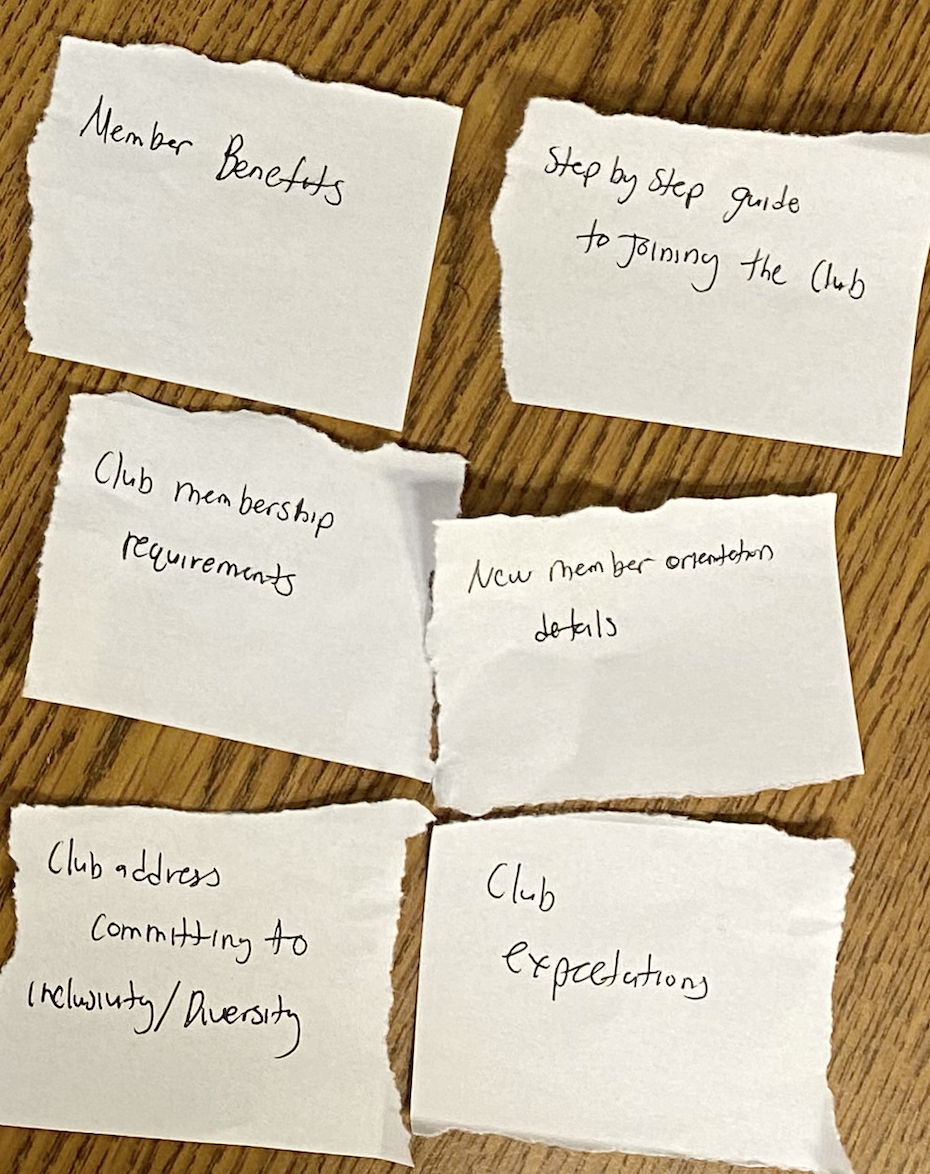 Member Benefits
Step by Step guide
to Joining the Club
Club membership
requirements
New member orientation
details
Club address
committing to
Inclusivity/Diversity
Club
expectations